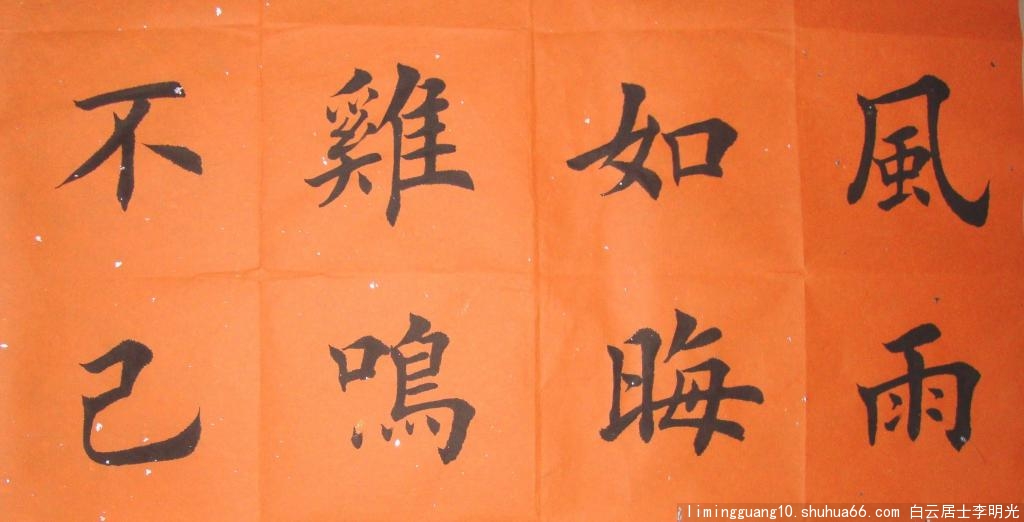 風雨
如晦
雞鳴
不已
limingguang10.shuhua66.com 白云居士李明光